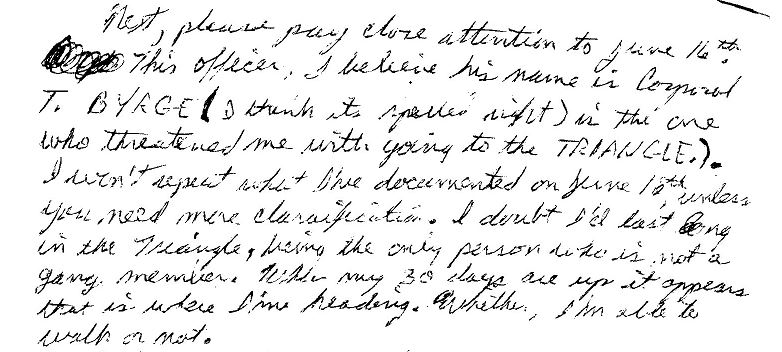 Next, please pay close attention to June 16th.
This officer, I believe his name is Corporal
T. BYRGE (I think its spelled right) is the one
who threatened me with going to the TRIANGLE.).
I won't repeat what I've documented on June 16th, unless
you need more clarification. I doubt I'd last long
in the Triangle, being the only person who is not a
gang member. When my 30 days are up it appears
that is where I'm heading. Whether, I'm able to
walk or not.